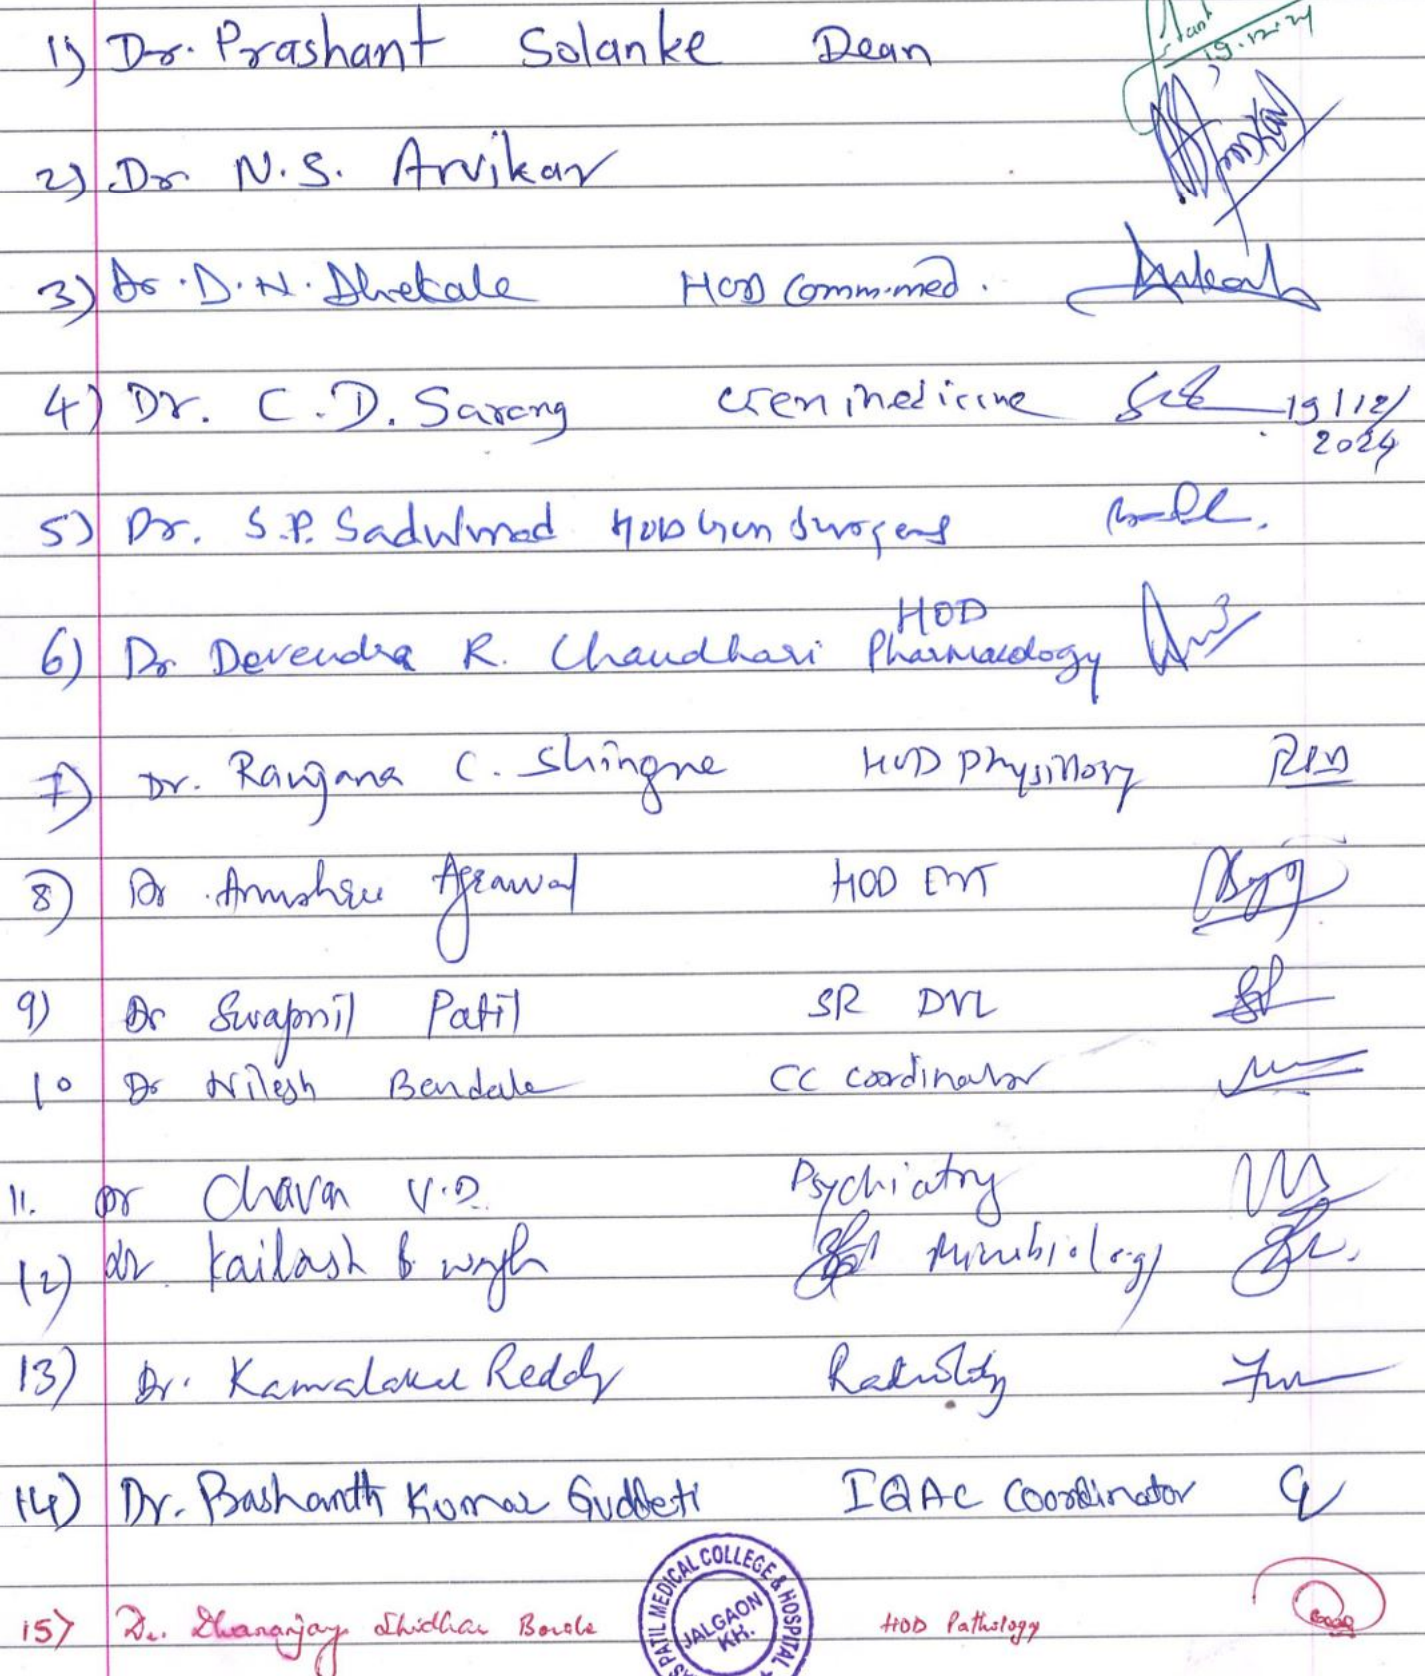 1) Dr. Prashant Solanke Dean
19.12.24
2) Dr N.S. Arvikar
3) Dr. D.N. Dhekale HOD Comm.med.
4) Dr. C.D. Sarang Gen medicine 19/12/
2024
5) Dr. S.P. HOD Gen Surgery
HOD
6) Dr Devendra R. Chaudhari Pharmacology
7) Dr. Ranjana C. Shingne HOD Physiology
8) Dr. Anushree Agrawal HOD ENT
9) Dr Swapnil Patil SR DVL
10 Dr Nilesh Bendale CC coordinator
11. Dr Chavan V.D. Psychiatry
12) dr. Kailash B wagh Microbiology
13) Dr. Reddy Radiology
14) Dr. Prashanth Kumar Guddeti IQAC Coordinator
15) Dr. Dhananjay Shidhar Borole HOD Pathology
PATIL MEDICAL COLLEGE & HOSPITAL
JALGAON
KH.